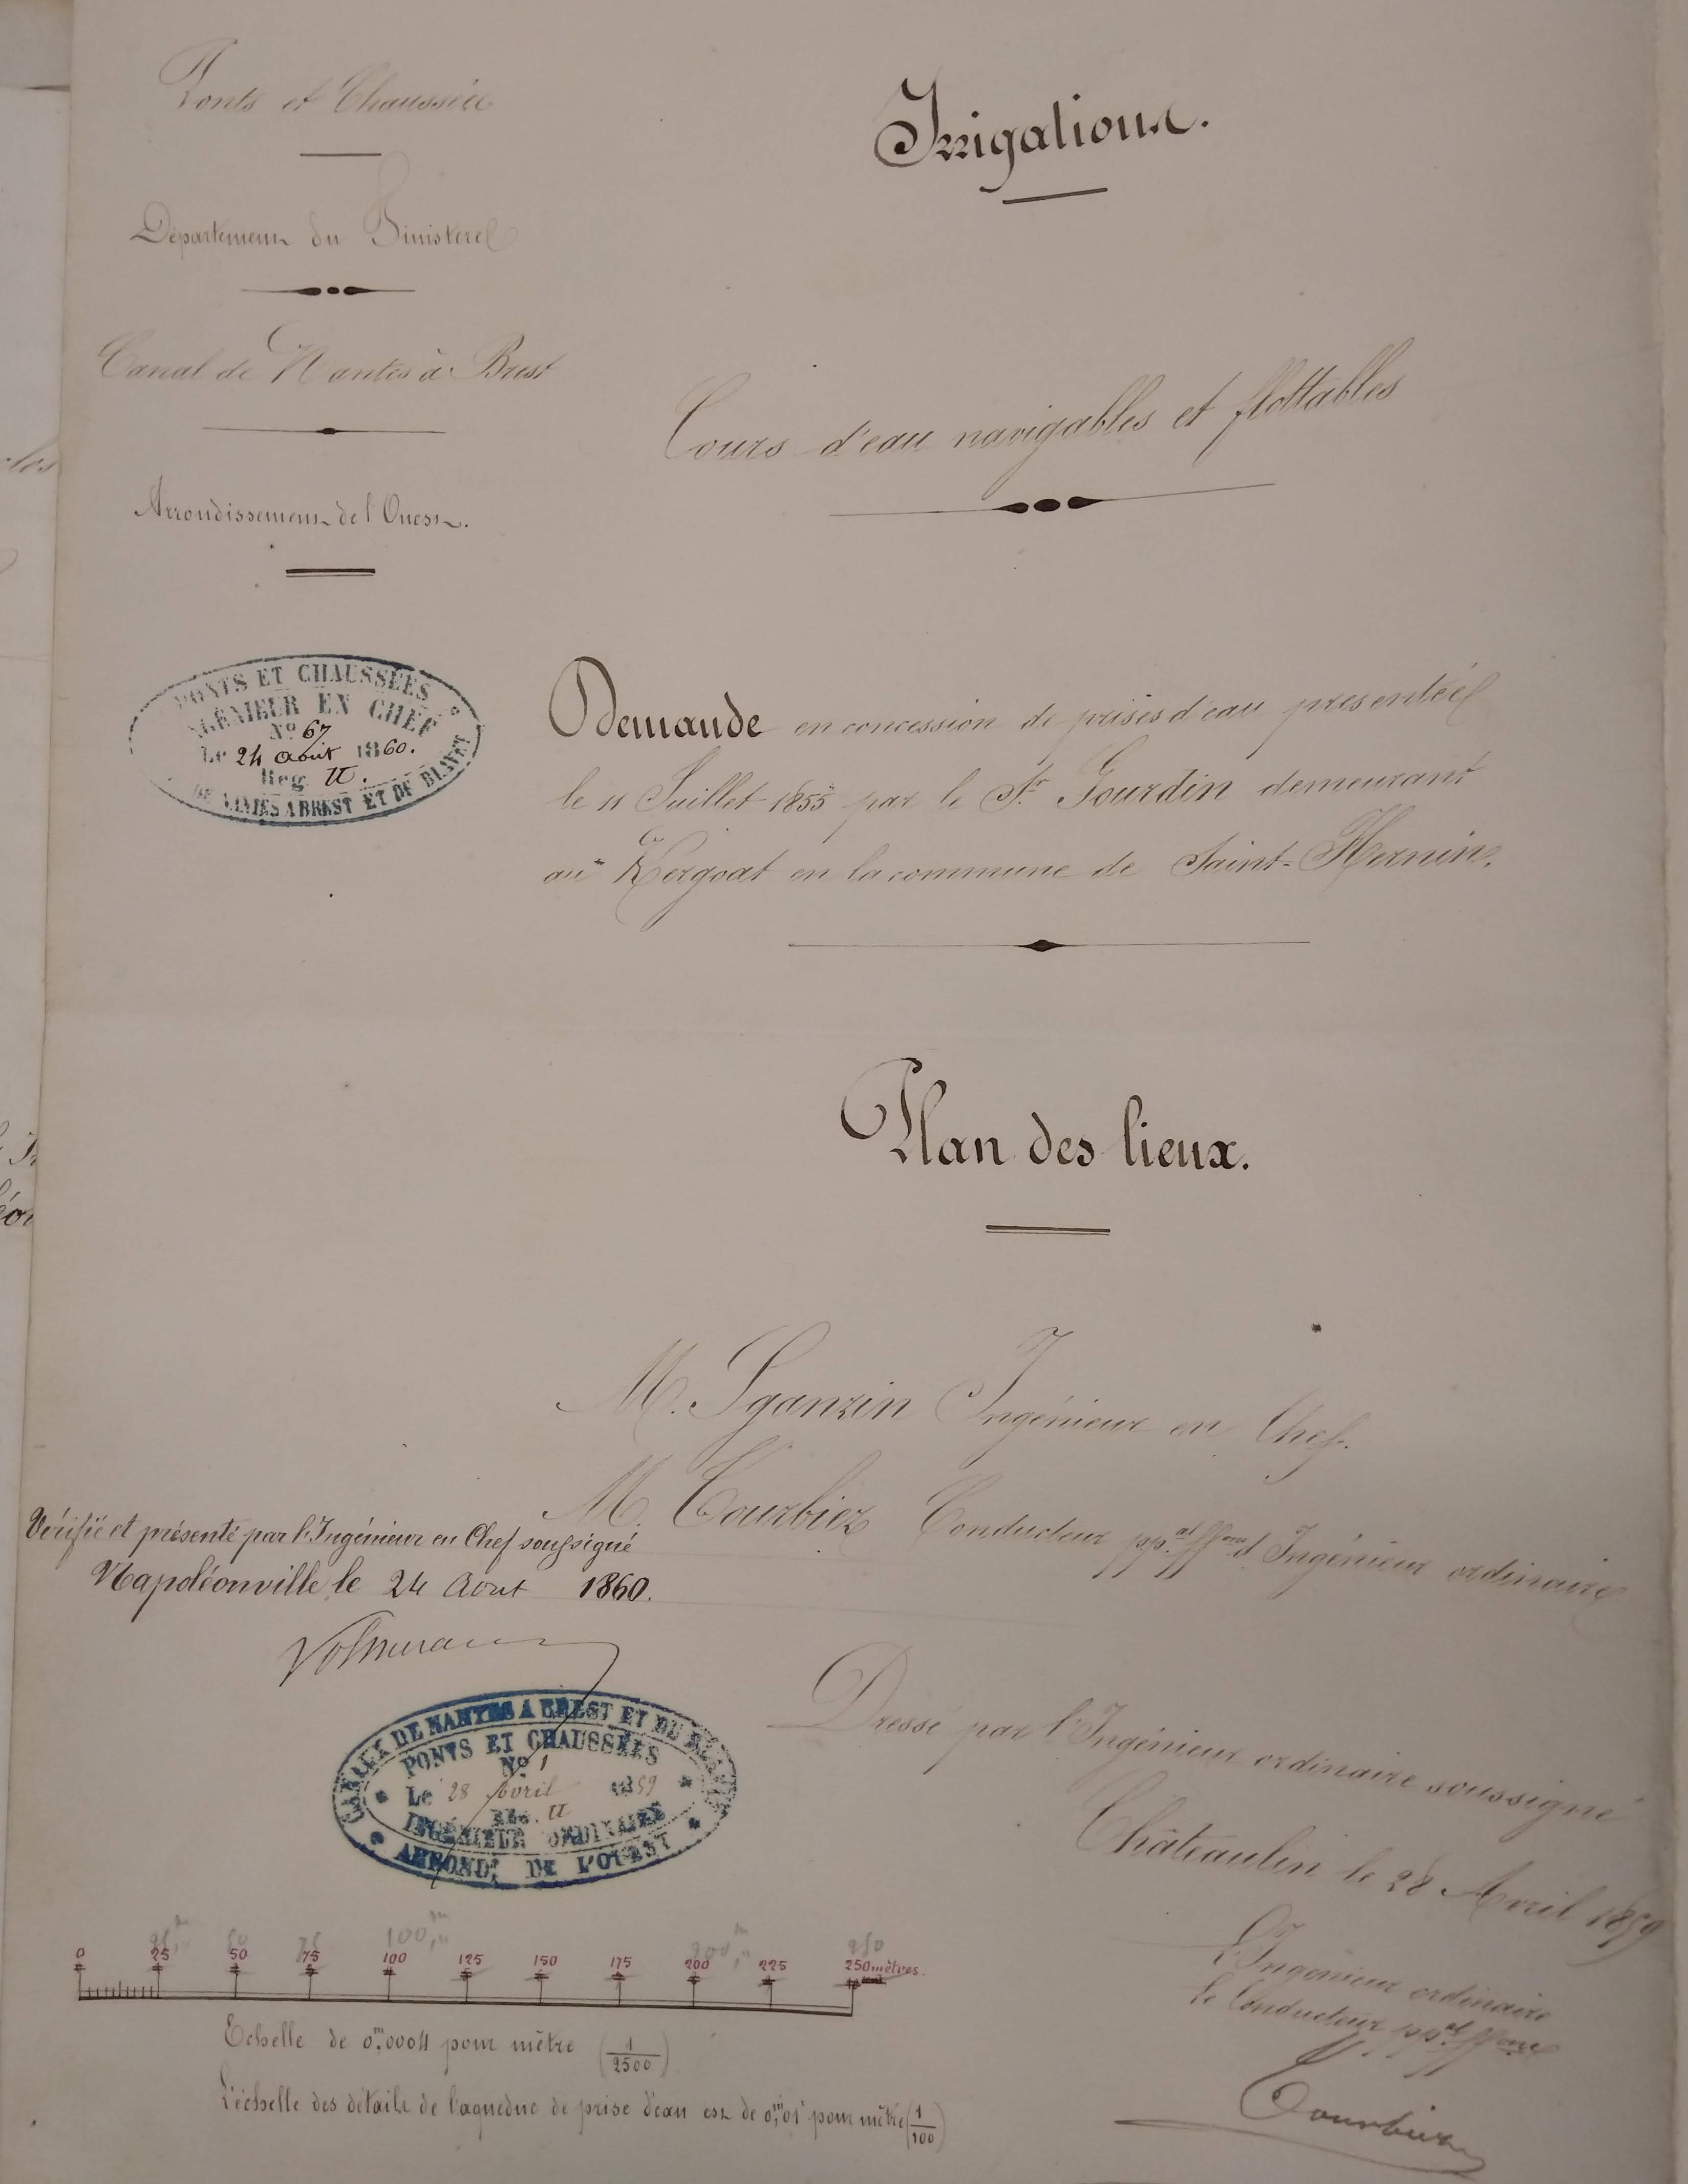 Ponts et Chaussées
Département du Finistère
Canal de Nantes à Brest
Arrondissement de l'Ouest.
PONTS ET CHAUSSÉES
INGÉNIEUR EN CHEF
No 67
Le 24 Août 1860.
Reg. II.
DE NANTES A BREST ET DE BLAVET
Irrigations.
Cours d'eau navigables et flottables
Demande en concession de prises d'eau présentée
le 11 Juillet 1855 par le Sr. Gourdin demeurant
au Kergoat en la commune de Saint-Hernin.
Plan des lieux.
M. Sganzin Ingénieur en Chef.
M. Courbiez Conducteur ppal ffons d'Ingénieur ordinaire
Vérifié et présenté par l'Ingénieur en Chef soussigné
Napoléonville le 24 Août 1860.
CANAUX DE NANTES A BREST ET DE BLAVET
PONTS ET CHAUSSÉES
No 1
Le 28 Avril 1859
REG. II
INGÉNIEUR ORDINAIRE
ARROND.t DE L'OUEST
Dressé par l'Ingénieur ordinaire soussigné
Châteaulin le 28 Avril 1859
L'Ingénieur ordinaire
Le Conducteur ppal ffons
Courbiez
25m 50 75 100m 200m 250
0 25 50 75 100 125 150 175 200 225 250 mètres.
Echelle de 0m,0004 pour mètre (1/2500)
L'échelle des détails de l'aqueduc de prise d'eau est de 0m,01 pour mètre (1/100)